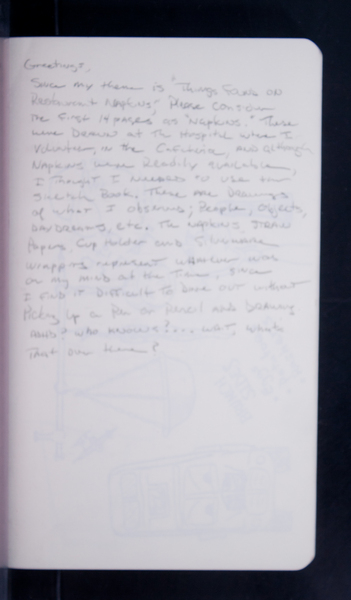 Greetings,
Since my theme is "Things Found on
Restaurant Napkins" Please consider
the first 14 pages as "Napkins." These
were Drawn at the Hospital where I
Volunteer, in the Cafeteria, and although
Napkins were Readily available,
I thought I needed to use the
Sketch Book. These are Drawings
of what I observed; People, Objects,
Day Dreams, etc. The Napkins, Straw
Papers, Cup Holder and Silverware
wrappers represent whatever was
on my mind at the Time, since
I find it Difficult to Dine out without
Picking up a Pen or Pencil and Drawing
and? who knows?... wait, what's
That over there?